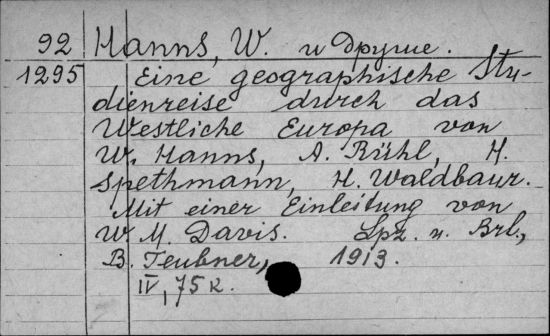 92 Hanns, W. и другие.
1295 Eine geographische Stu-
dienreise durch das
Westliche Europa von
W. Hanns, A. Rühl, H.
Spethmann, H. Waldbaur.
Mit einer Einleitung von
W. M. Davis. Lpz. u. Brl.,
B. Teubner, 1913.
IV, 75 s.